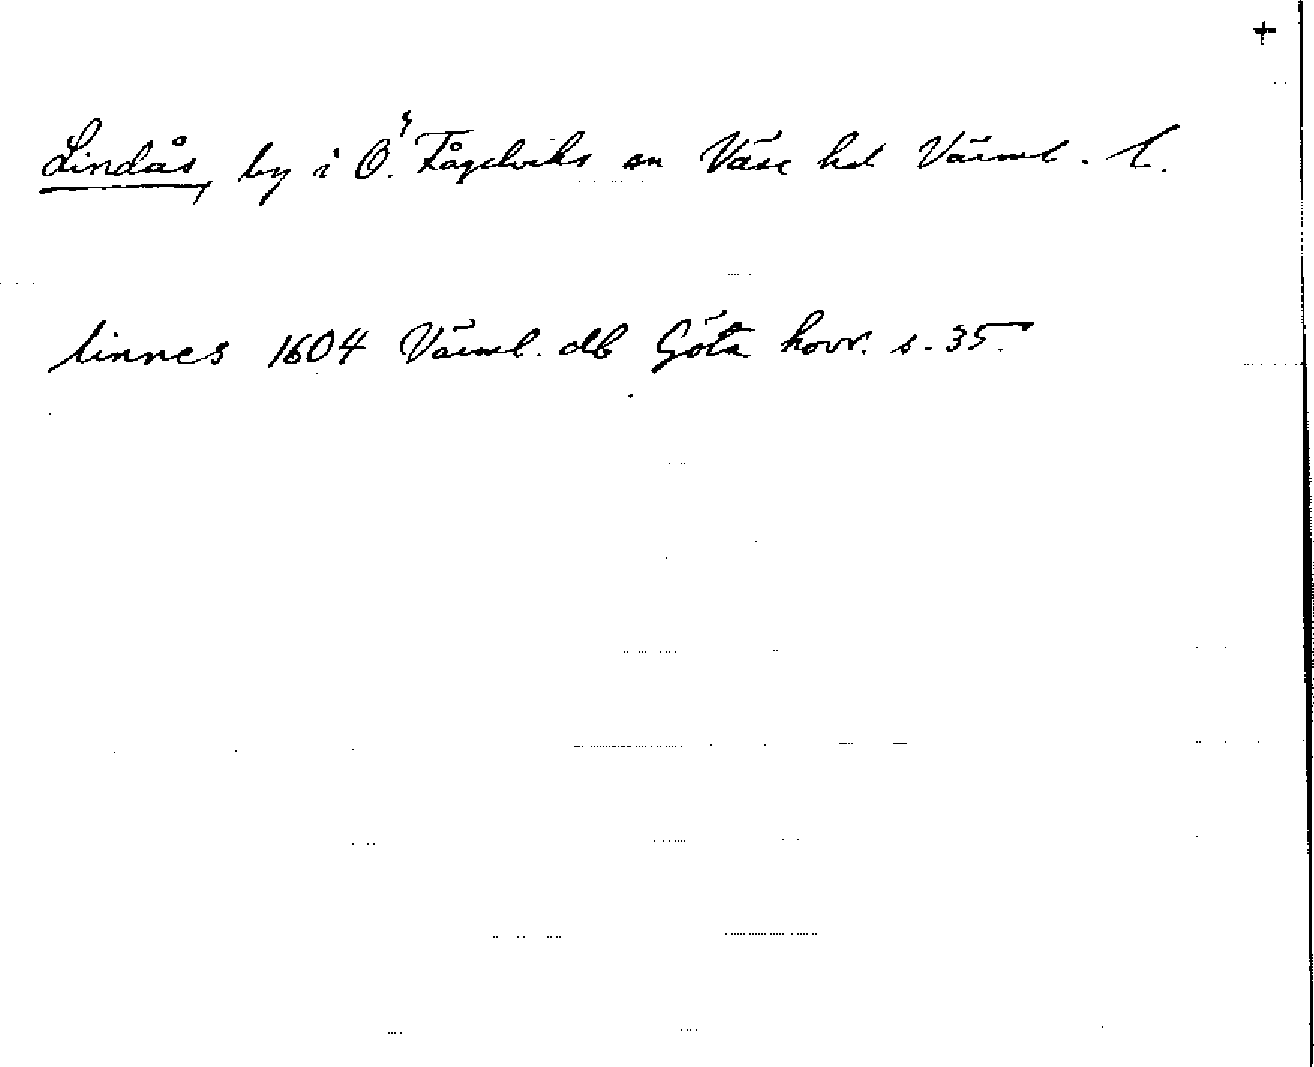 +
Lindås, by i Ö. Fågelviks sn Väse hd Värml. l.
linnes 1604 Värml. db Göta hovr. s. 35.